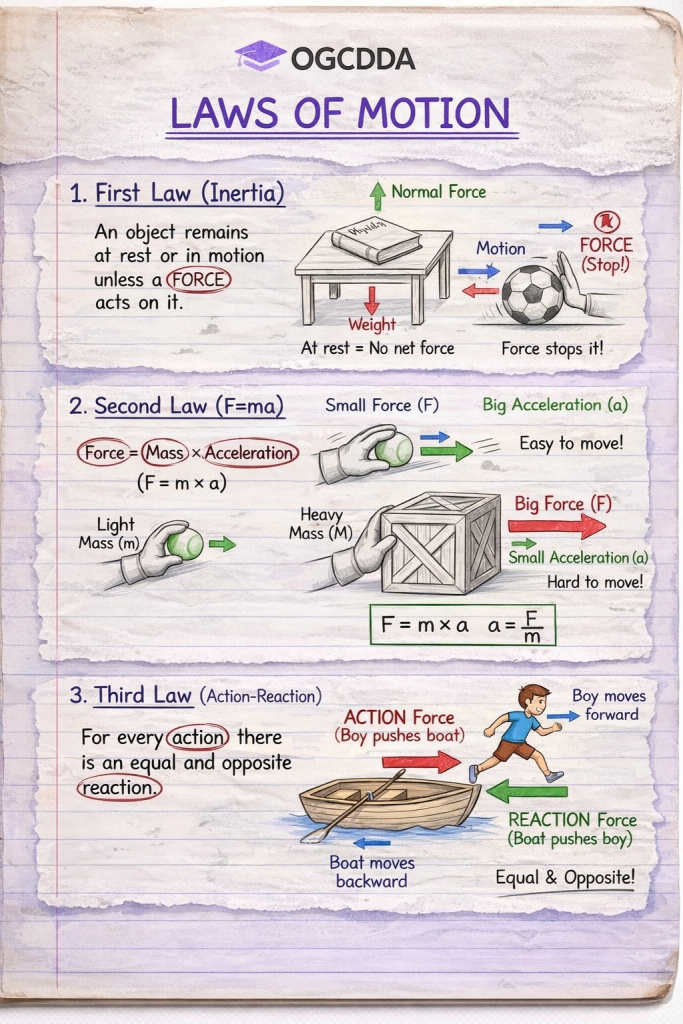 OGCDDA
LAWS OF MOTION
1. First Law (Inertia)
An object remains
at rest or in motion
unless a FORCE
acts on it.
Normal Force
Weight
At rest = No net force
Motion
FORCE
(Stop!)
Force stops it!
2. Second Law (F=ma)
Force = Mass × Acceleration
(F = m × a)
Light
Mass (m)
Small Force (F)
Big Acceleration (a)
Easy to move!
Heavy
Mass (M)
Big Force (F)
Small Acceleration (a)
Hard to move!
F = m × a a = F/m
3. Third Law (Action-Reaction)
For every action there
is an equal and opposite
reaction.
ACTION Force
(Boy pushes boat)
Boy moves
forward
REACTION Force
(Boat pushes boy)
Boat moves
backward
Equal & Opposite!